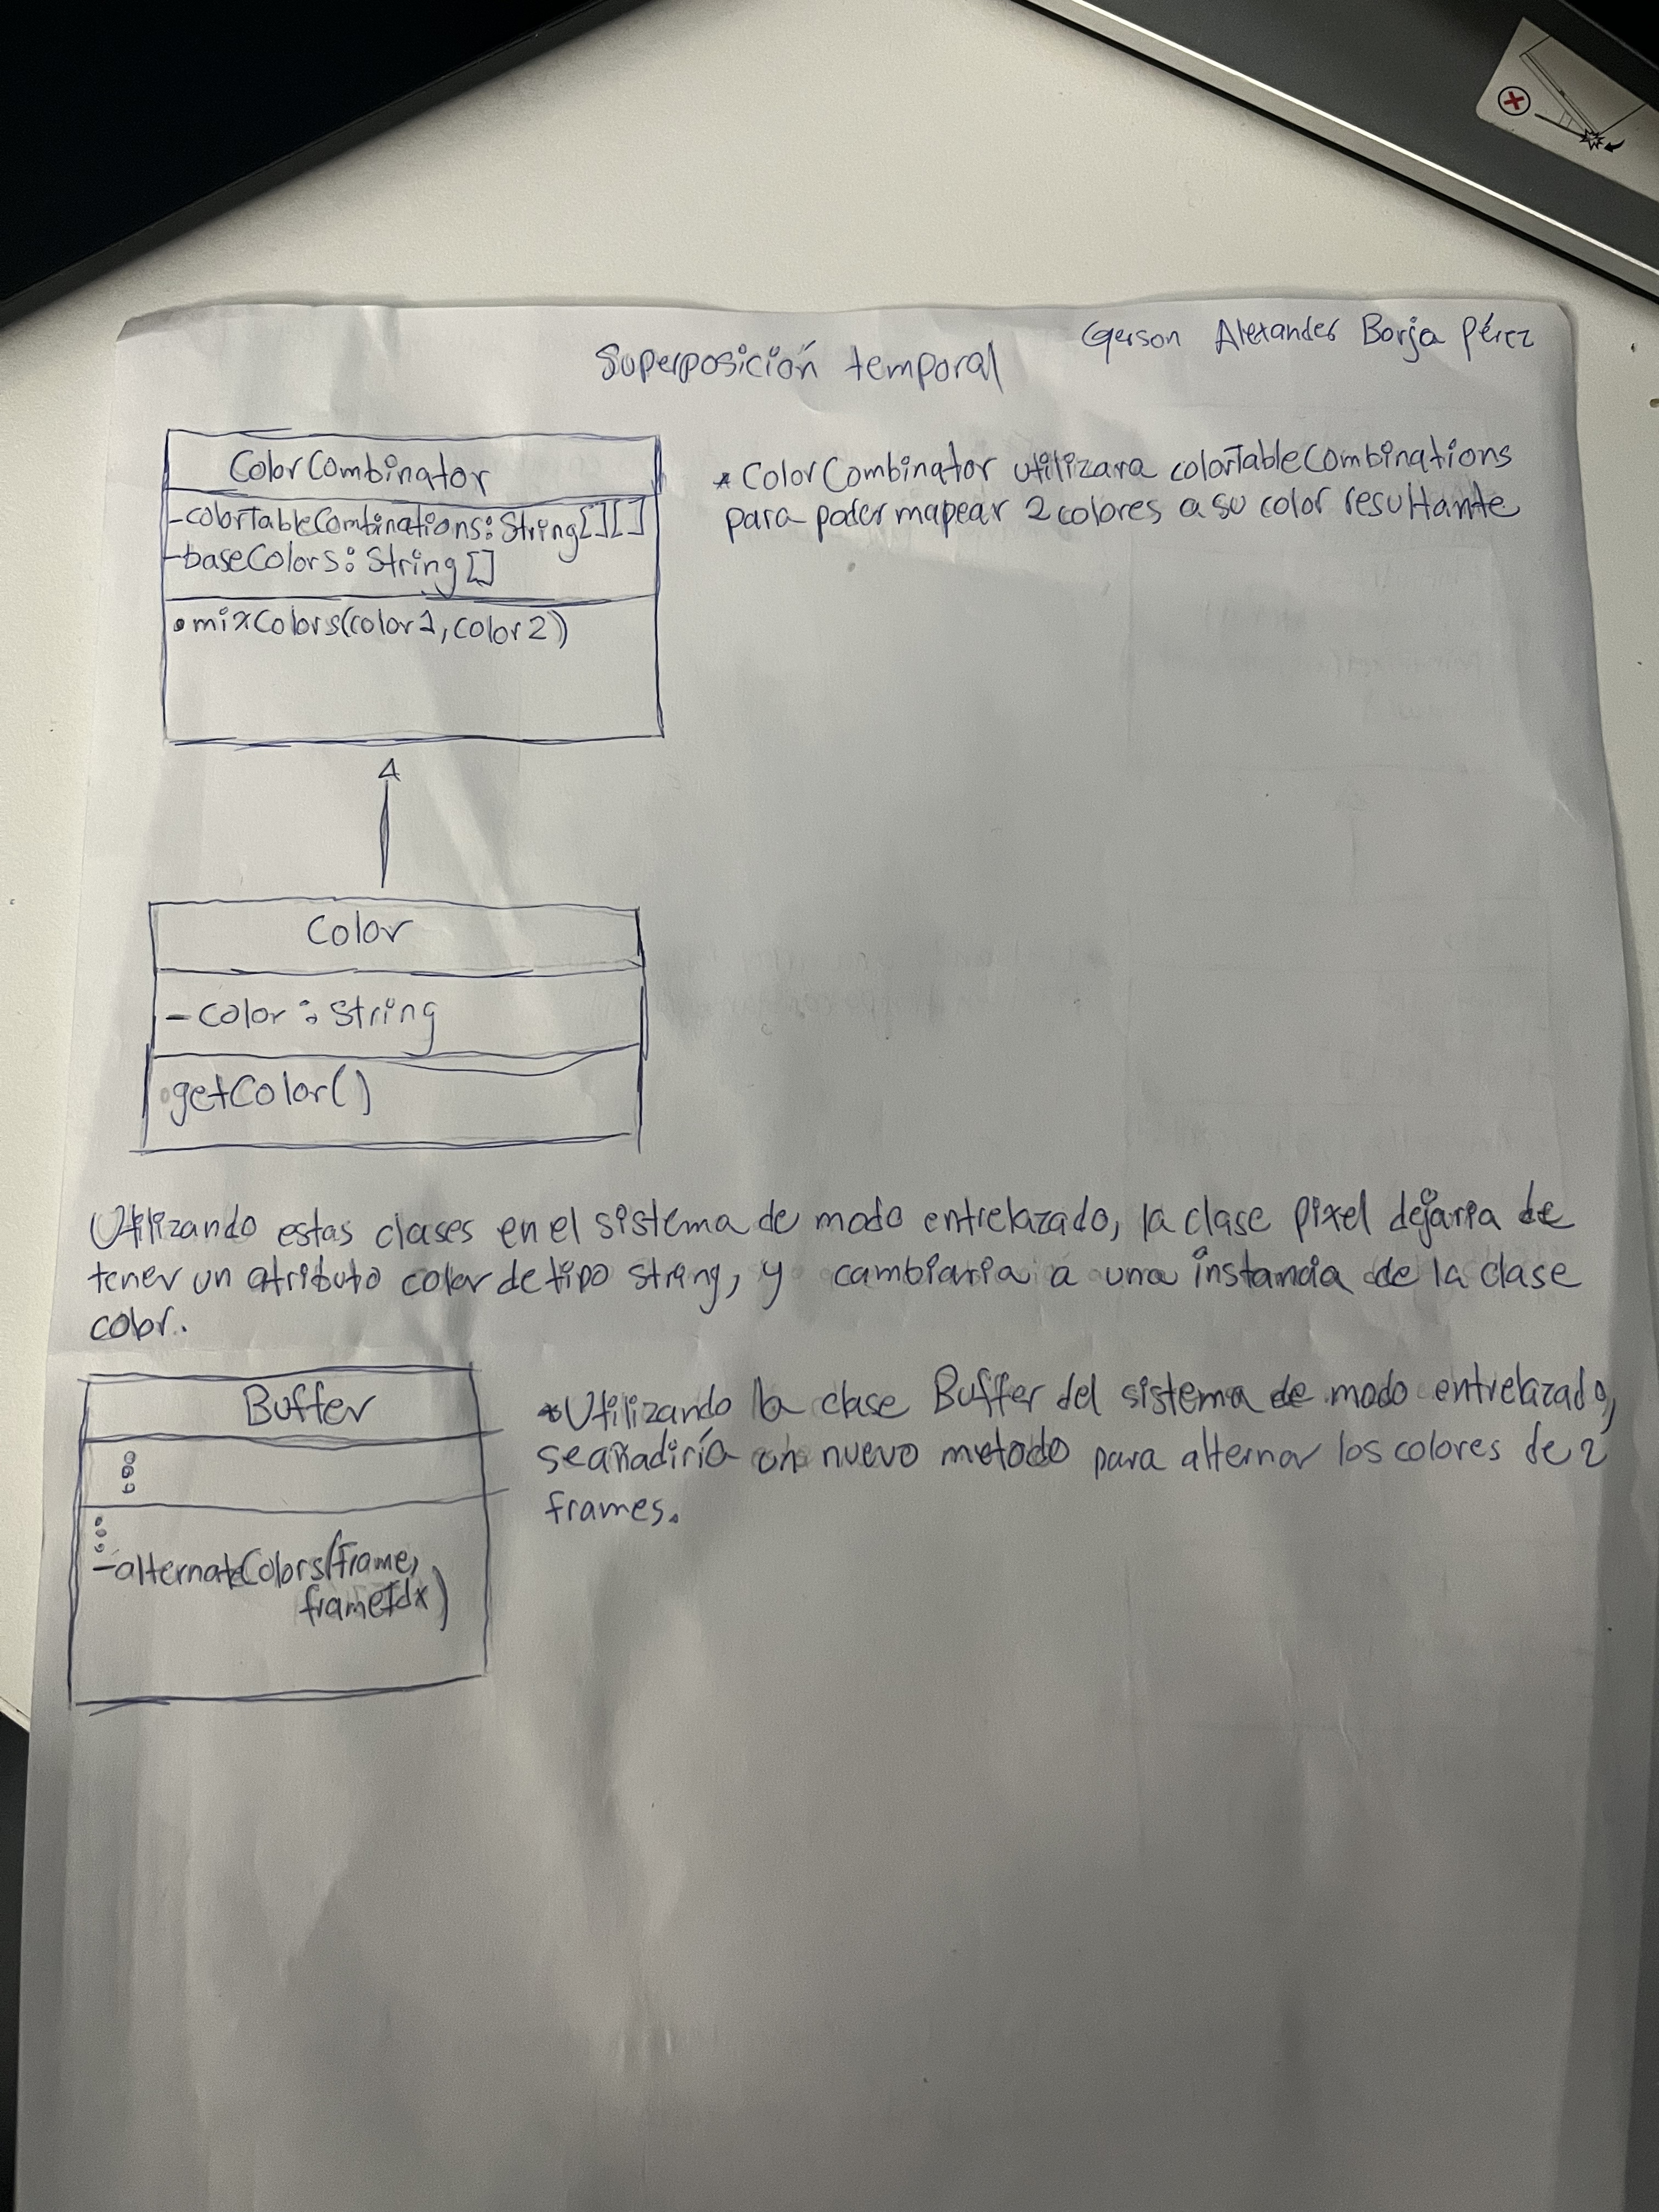 Gerson Alexander Borja Pérez
Superposición temporal
ColorCombinator
-colorTableCombinations: String[][]
-baseColors: String[]
•mixColors(color1, color2)
* ColorCombinator utilizara colorTableCombinations
para poder mapear 2 colores a su color resultante
Color
-color: String
•getColor()
Utilizando estas clases en el sistema de modo entrelazado, la clase pixel dejaria de
tener un atributo color de tipo string, y cambiaria a una instancia de la clase
color.
Buffer
-alternateColors(frame,
frameIdx)
*Utilizando la clase Buffer del sistema de modo entrelazado,
se añadiría un nuevo metodo para alternar los colores de 2
frames.